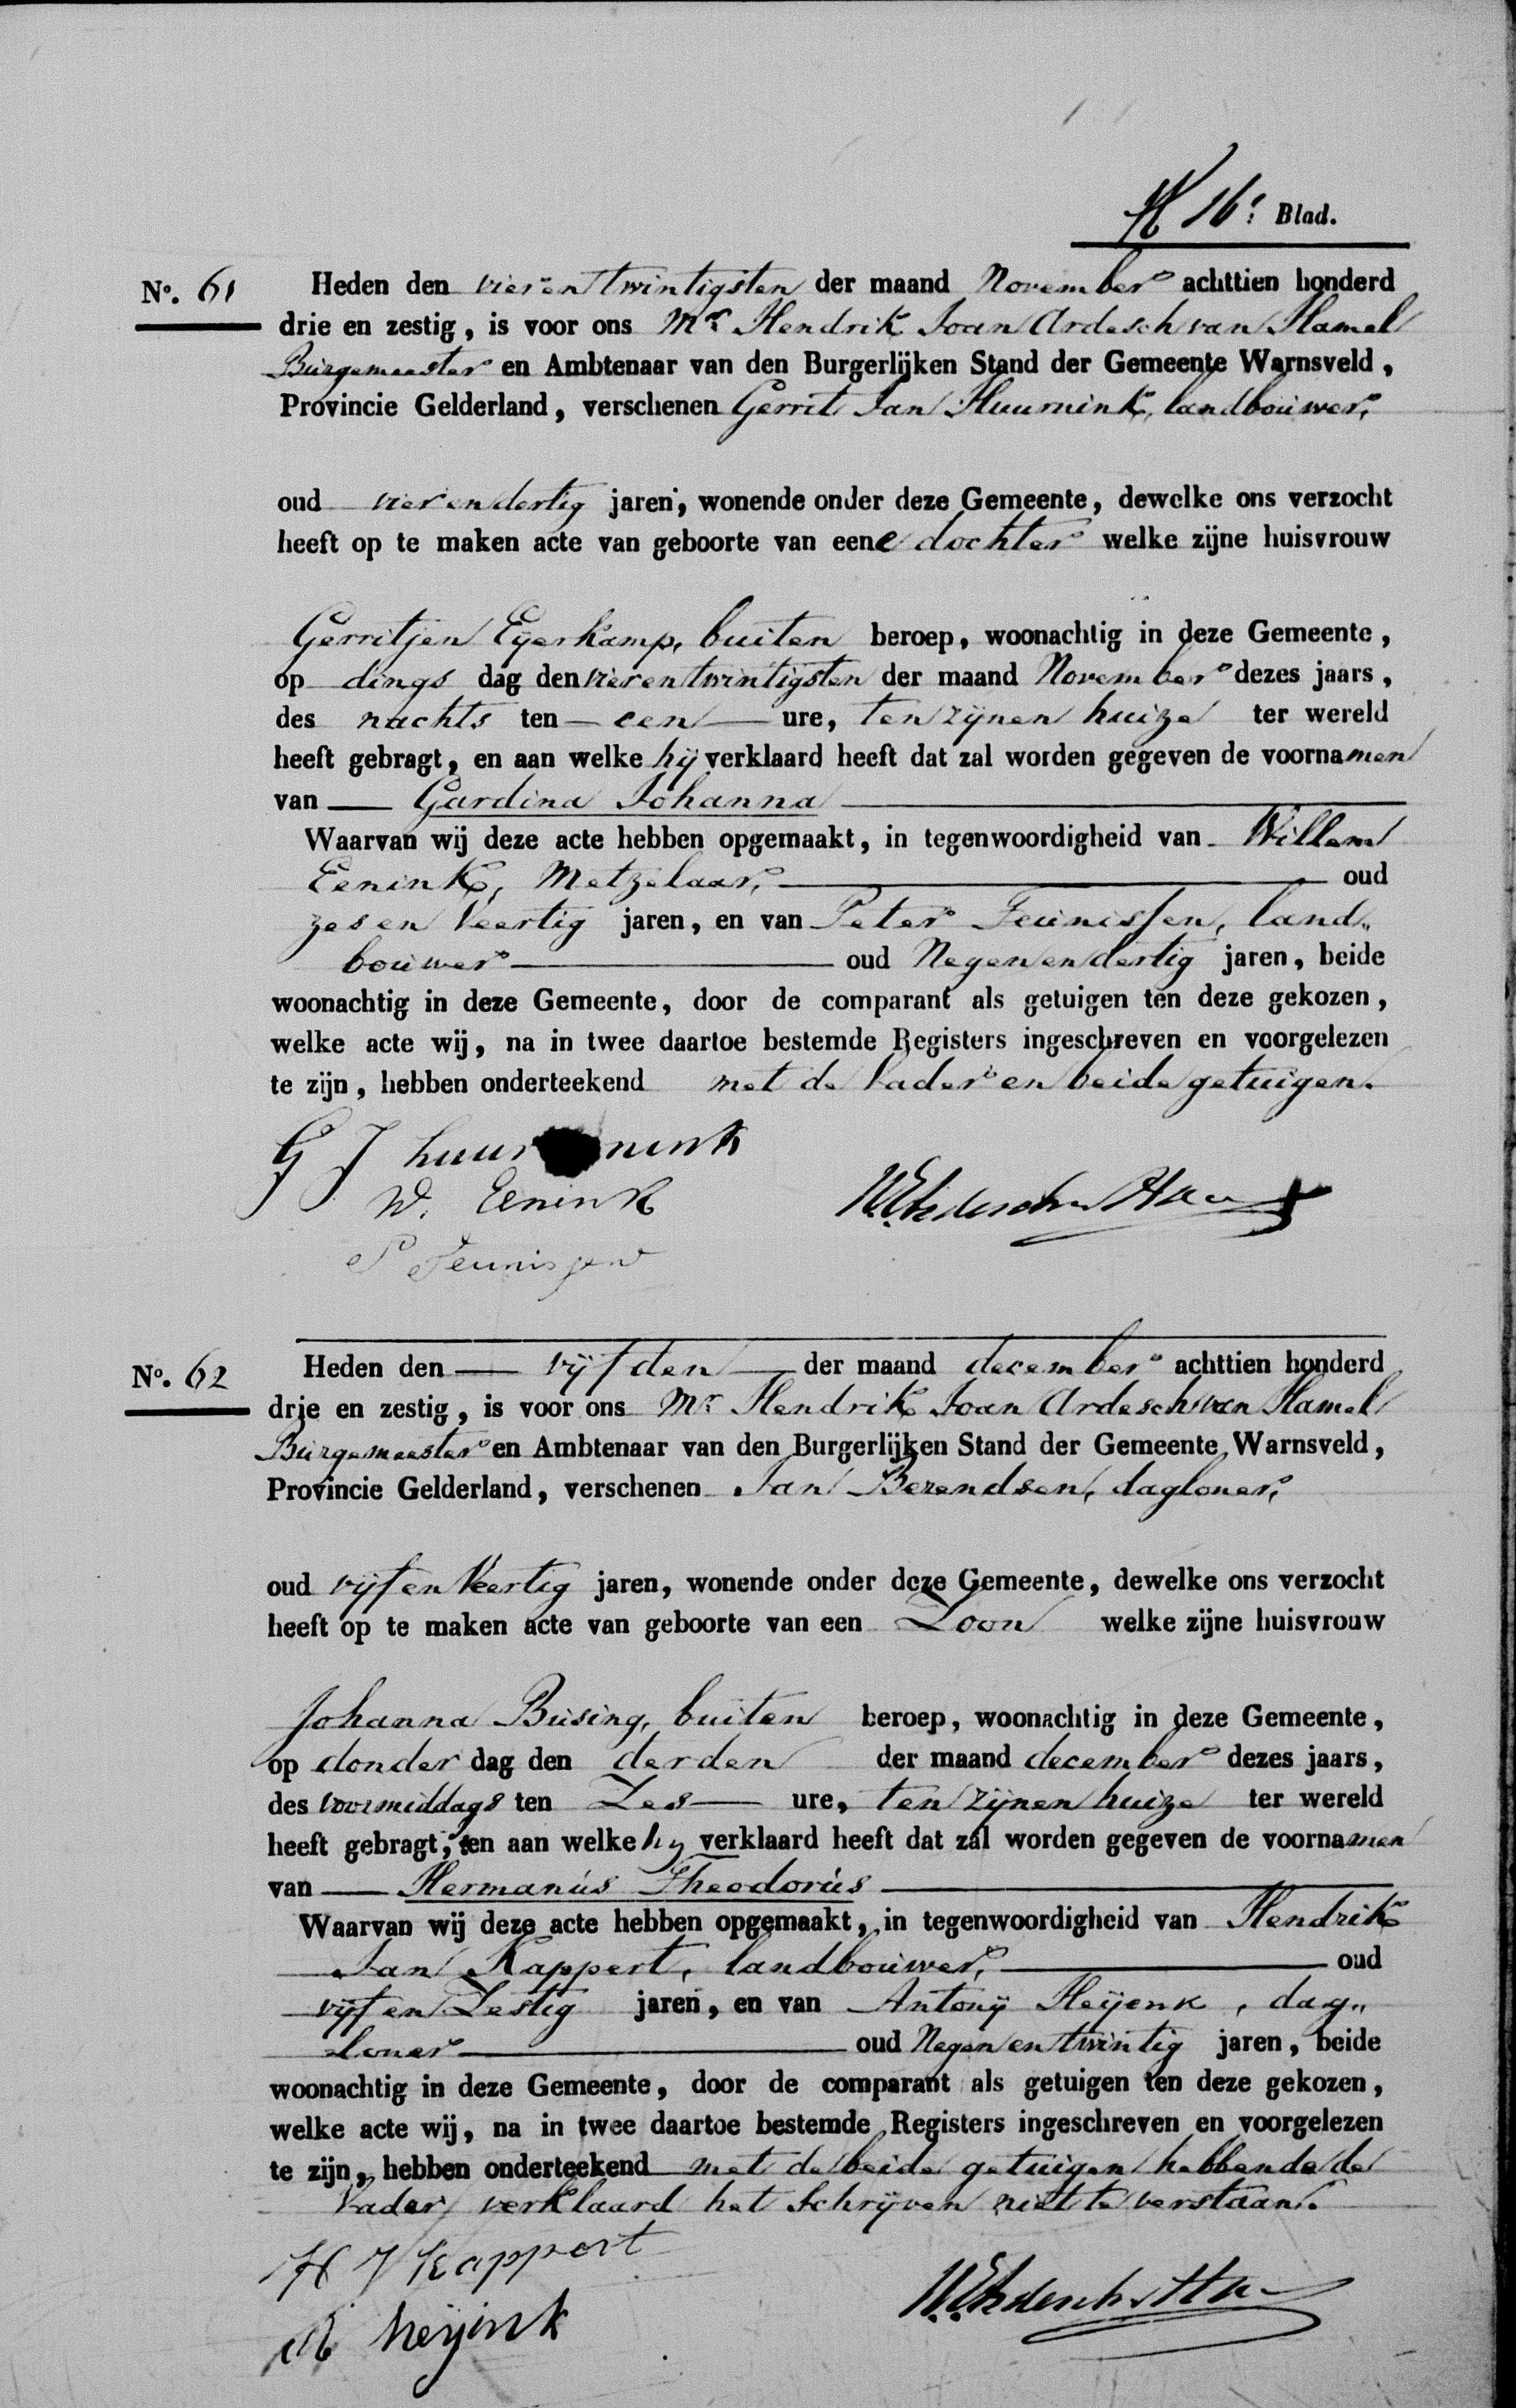 16e Blad.
No. 61
Heden den vierentwintigsten der maand November achttien honderd
drie en zestig, is voor ons Mr Hendrik Joan Ardesch van Hamel
Burgemeester en Ambtenaar van den Burgerlijken Stand der Gemeente Warnsveld,
Provincie Gelderland, verschenen Gerrit Jan Huurnink, landbouwer,
oud vierendertig jaren, wonende onder deze Gemeente, dewelke ons verzocht
heeft op te maken acte van geboorte van eene dochter welke zijne huisvrouw
Gerritjen Eijerkamp, buiten beroep, woonachtig in deze Gemeente,
op dings dag den vierentwintigsten der maand November dezes jaars,
des nachts ten een ure, ten zijnen huize ter wereld
heeft gebragt, en aan welke hij verklaard heeft dat zal worden gegeven de voornamen
van Gardina Johanna
Waarvan wij deze acte hebben opgemaakt, in tegenwoordigheid van Willem
Eenink, Metzelaar, oud
zesenveertig jaren, en van Peter Teunissen, land„
bouwer oud Negenendertig jaren, beide
woonachtig in deze Gemeente, door de comparant als getuigen ten deze gekozen,
welke acte wij, na in twee daartoe bestemde Registers ingeschreven en voorgelezen
te zijn, hebben onderteekend met de Vader en beide getuigen.
G J huurnink
W. Eenink
P Teunissen
No. 62
Heden den vijfden der maand december achttien honderd
drie en zestig, is voor ons Mr Hendrik Joan Ardesch van Hamel
Burgemeester en Ambtenaar van den Burgerlijken Stand der Gemeente Warnsveld,
Provincie Gelderland, verschenen Jan Berendsen, dagloner,
oud vijfenveertig jaren, wonende onder deze Gemeente, dewelke ons verzocht
heeft op te maken acte van geboorte van een Zoon welke zijne huisvrouw
Johanna Büsing, buiten beroep, woonachtig in deze Gemeente,
op donder dag den derden der maand december dezes jaars,
des voormiddags ten Zes ure, ten zijnen huize ter wereld
heeft gebragt, en aan welke hij verklaard heeft dat zal worden gegeven de voornamen
van Hermanus Theodorus
Waarvan wij deze acte hebben opgemaakt, in tegenwoordigheid van Hendrik
Jan Kappert, landbouwer, oud
vijfenZestig jaren, en van Antonij Heijenk, dag„
loner oud Negenentwintig jaren, beide
woonachtig in deze Gemeente, door de comparant als getuigen ten deze gekozen,
welke acte wij, na in twee daartoe bestemde Registers ingeschreven en voorgelezen
te zijn, hebben onderteekend met de beide getuigen hebbende de
Vader verklaard het Schrijven niet te verstaan.
H J Kappert
A heijink